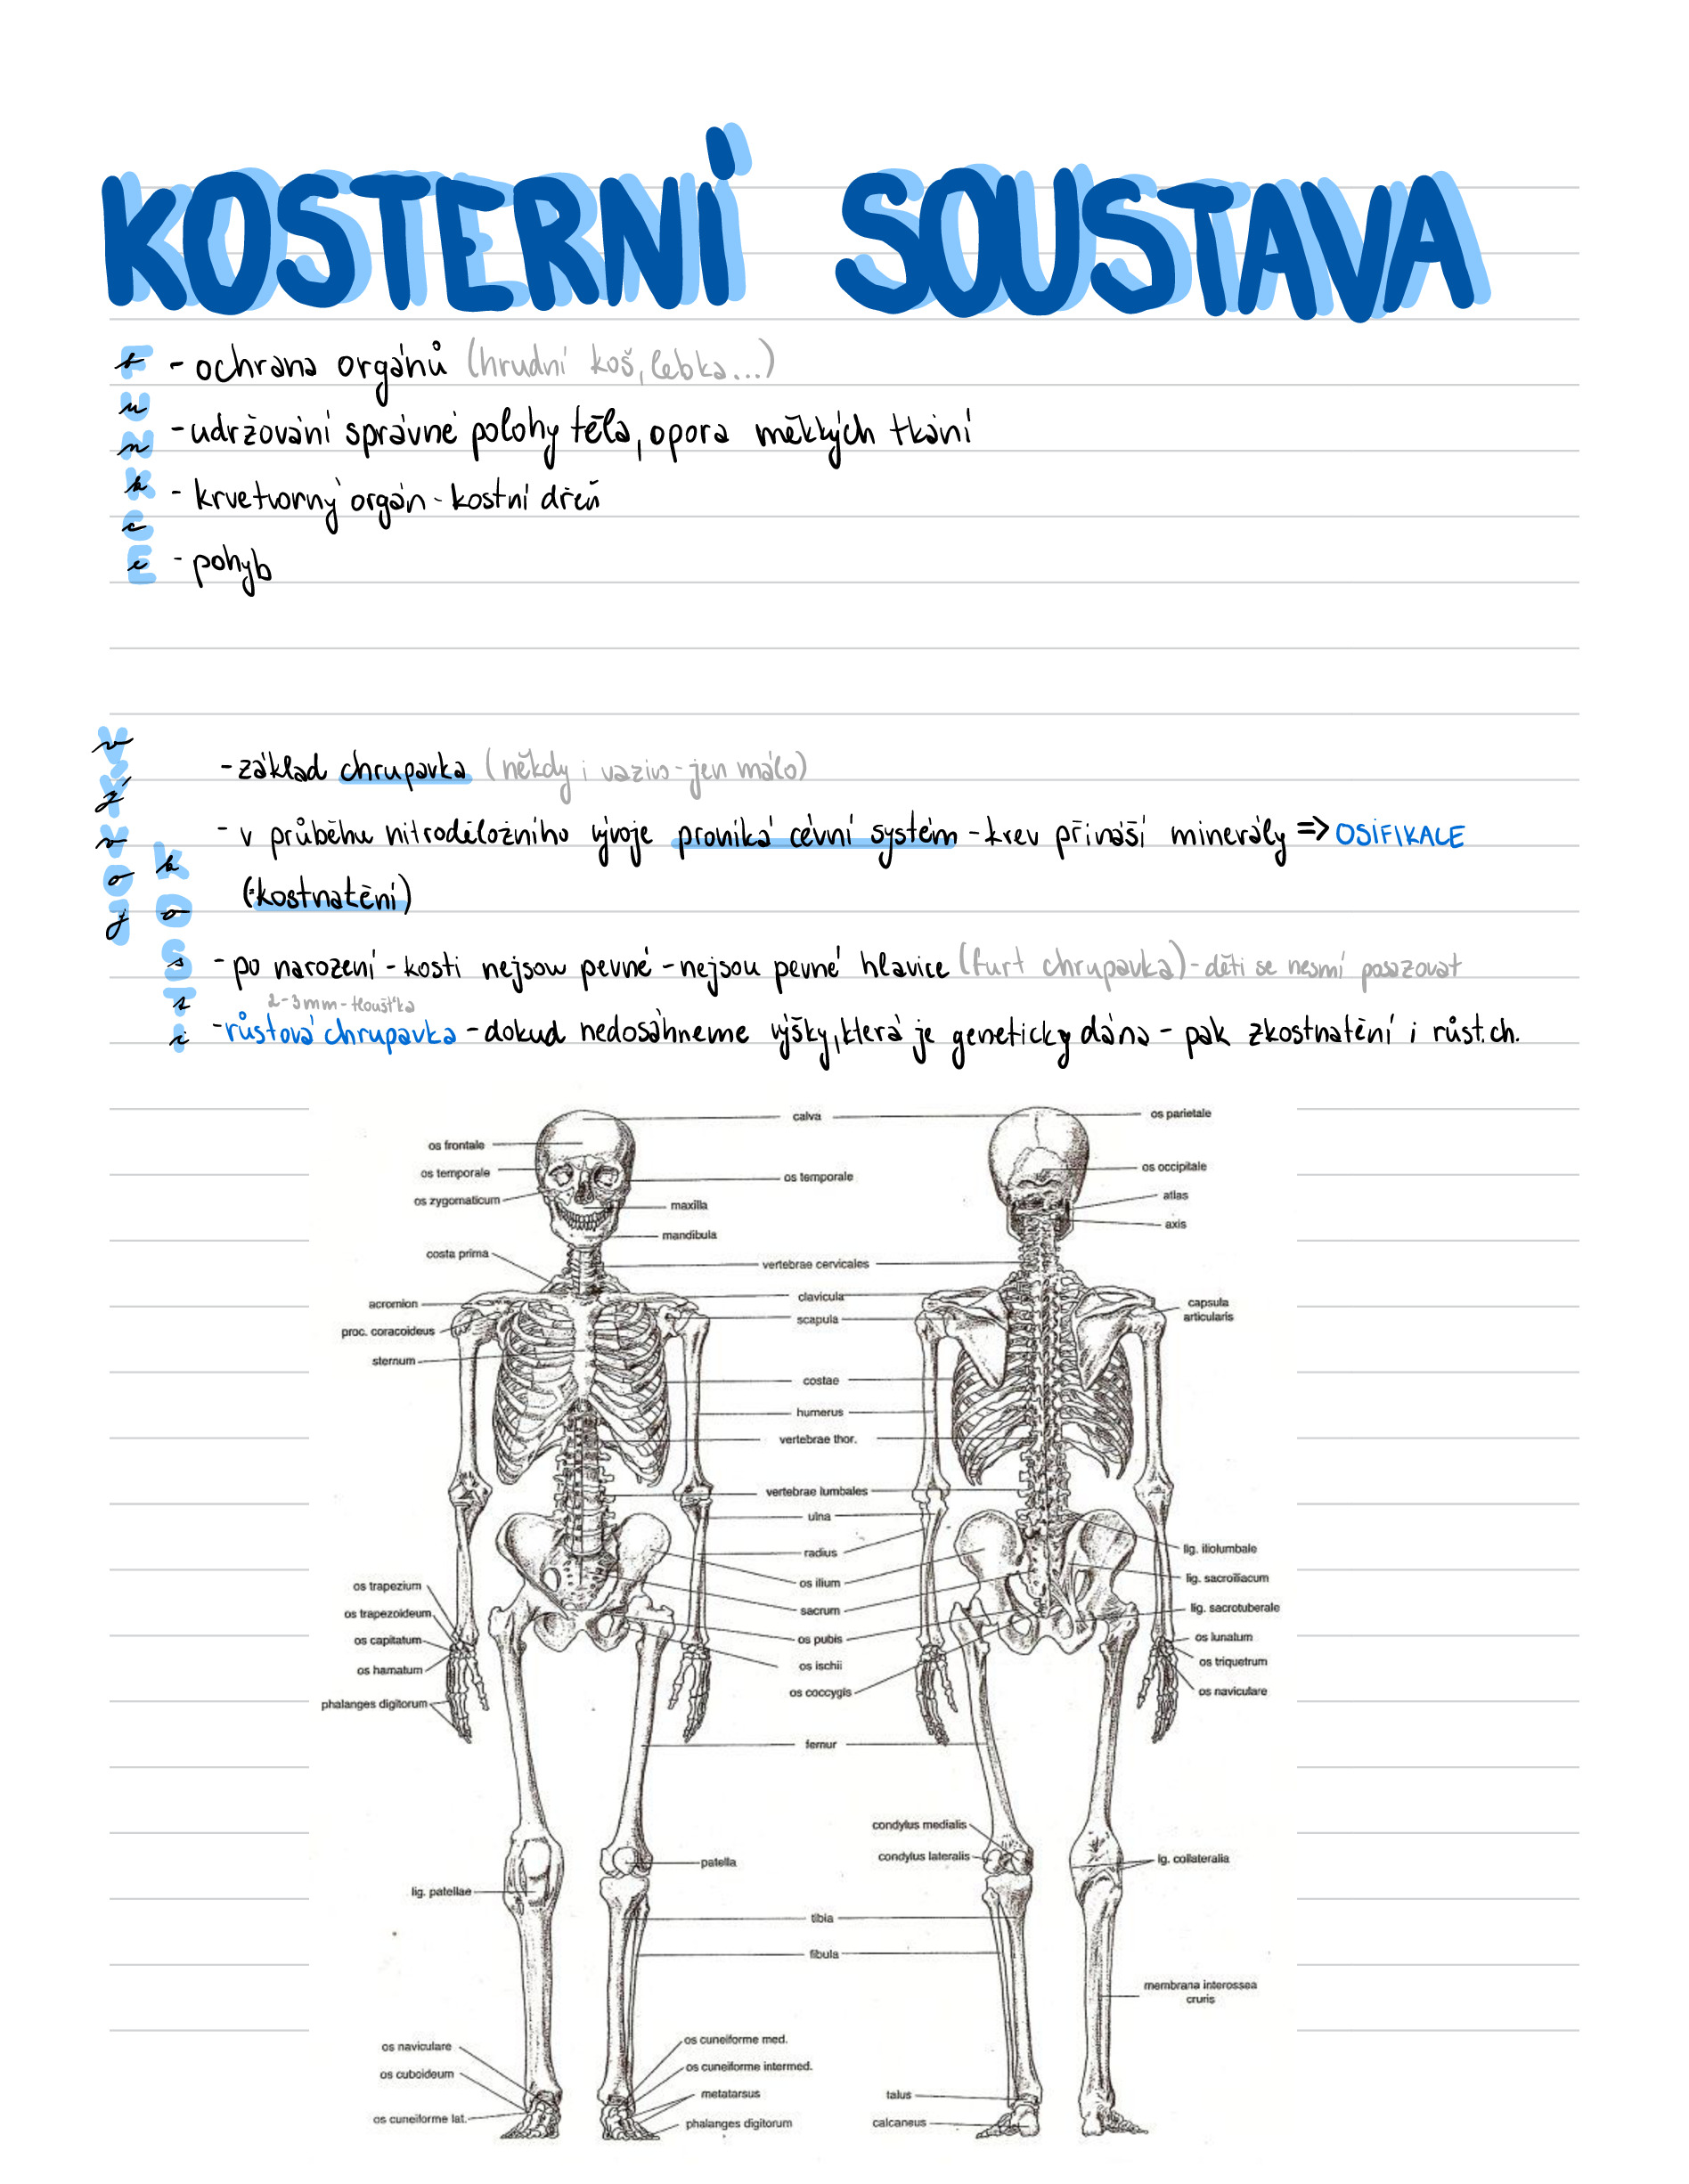 KOSTERNÍ SOUSTAVA
Funkce
- ochrana orgánů (hrudní koš, lebka...)
- udržování správné polohy těla, opora měkkých tkání
- krvetvorný orgán - kostní dřeň
- pohyb
Vývoj kosti
- základ chrupavka (někdy i vazivo - jen málo)
- v průběhu nitroděložního vývoje proniká cévní systém - krev přináší minerály => OSIFIKACE
(=kostnatění)
- po narození - kosti nejsou pevné - nejsou pevné hlavice (furt chrupavka) - děti se nesmí posazovat
2-3mm - tloušťka
- růstová chrupavka - dokud nedosáhneme výšky, která je geneticky dána - pak zkostnatění i růst. ch.
calva
os parietale
os frontale
os temporale
os temporale
os occipitale
os zygomaticum
maxilla
atlas
mandibula
axis
costa prima
vertebrae cervicales
acromion
clavicula
capsula
articularis
proc. coracoideus
scapula
sternum
costae
humerus
vertebrae thor.
vertebrae lumbales
ulna
radius
lig. iliolumbale
os trapezium
os ilium
lig. sacroiliacum
os trapezoideum
sacrum
lig. sacrotuberale
os capitatum
os pubis
os lunatum
os hamatum
os ischii
os triquetrum
phalanges digitorum
os coccygis
os naviculare
femur
condylus medialis
condylus lateralis
patella
lig. collateralia
lig. patellae
tibia
fibula
membrana interossea
cruris
os naviculare
os cuneiforme med.
os cuboideum
os cuneiforme intermed.
metatarsus
talus
os cuneiforme lat.
phalanges digitorum
calcaneus